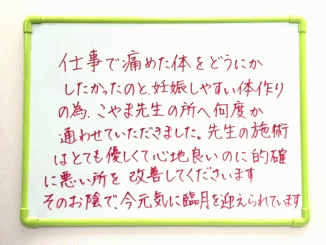 仕事で痛めた体をどうにか
したかったのと、妊娠しやすい体作り
の為、こやま先生の所へ何度か
通わせていただきました。先生の施術
はとても優しくて心地良いのに的確
に悪い所を改善してくださいます
そのお陰で、今元気に臨月を迎えられています